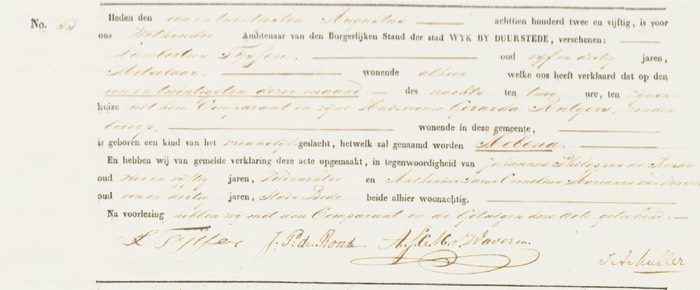 No. 53 Heden den een en twintigsten Augustus achttien honderd twee en vijftig, is voor
ons Wethouder Ambtenaar van den Burgerlijken Stand der stad WYK BY DUURSTEDE, verschenen:
Lambertus oud vijf en dertig jaren,
Metselaar, wonende alhier, welke ons heeft verklaard dat op den
een en twintigsten dezer maand des nachts ten twee ure, ten zijnen
huize uit hem Comparant en zijne Huisvrouw Gerarda Rutgers, zonder
beroep, wonende in deze gemeente,
is geboren een kind van het vrouwelijk geslacht, hetwelk zal genaamd worden
En hebben wij van gemelde verklaring deze acte opgemaakt, in tegenwoordigheid van Johannes Philippus de Ronde
oud vier en vijftig jaren, en Cornelius Marianus van Waveren
oud een en dertig jaren, Stads Bode beide alhier woonachtig.
Na voorlezing hebben wij met den Comparant en de Getuigen deze Acte geteekend.
J. P. de Ronde A. J. C. M. v. Waveren